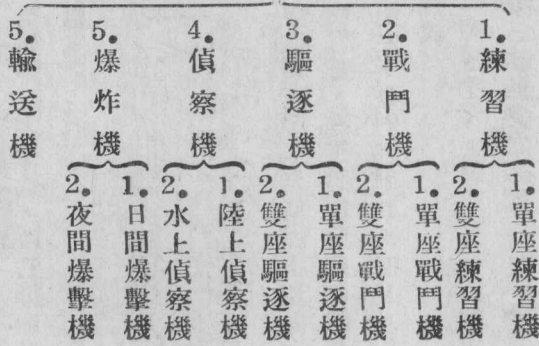 1.練習機
1.單座練習機
2.雙座練習機
2.戰鬥機
1.單座戰鬥機
2.雙座戰鬥機
3.驅逐機
1.單座驅逐機
2.雙座驅逐機
4.偵察機
1.陸上偵察機
2.水上偵察機
5.爆炸機
1.日間爆擊機
2.夜間爆擊機
5.輸送機